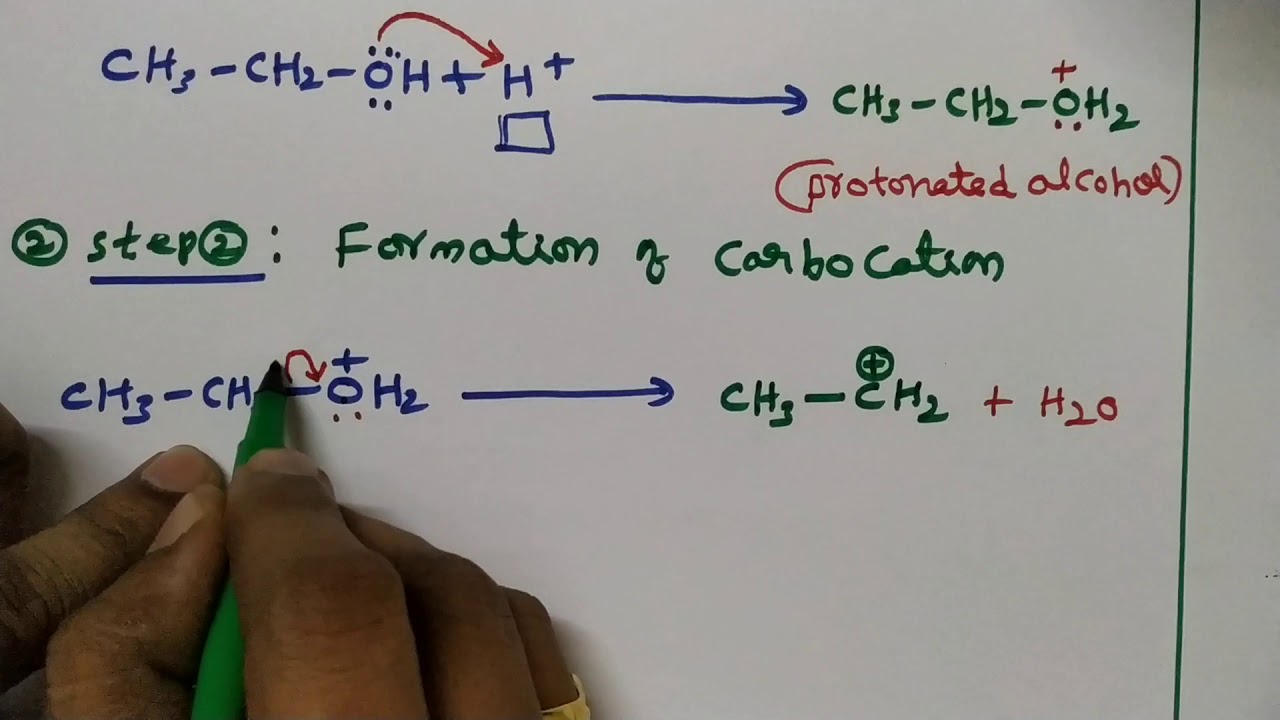 CH3 - CH2 - ÖH + H+ → CH3 - CH2 - OH2 +
(protonated alcohol)
② step②: Formation of carbocation
CH3 - CH - OH2 + → CH3 - CH2 ⊕ + H2O